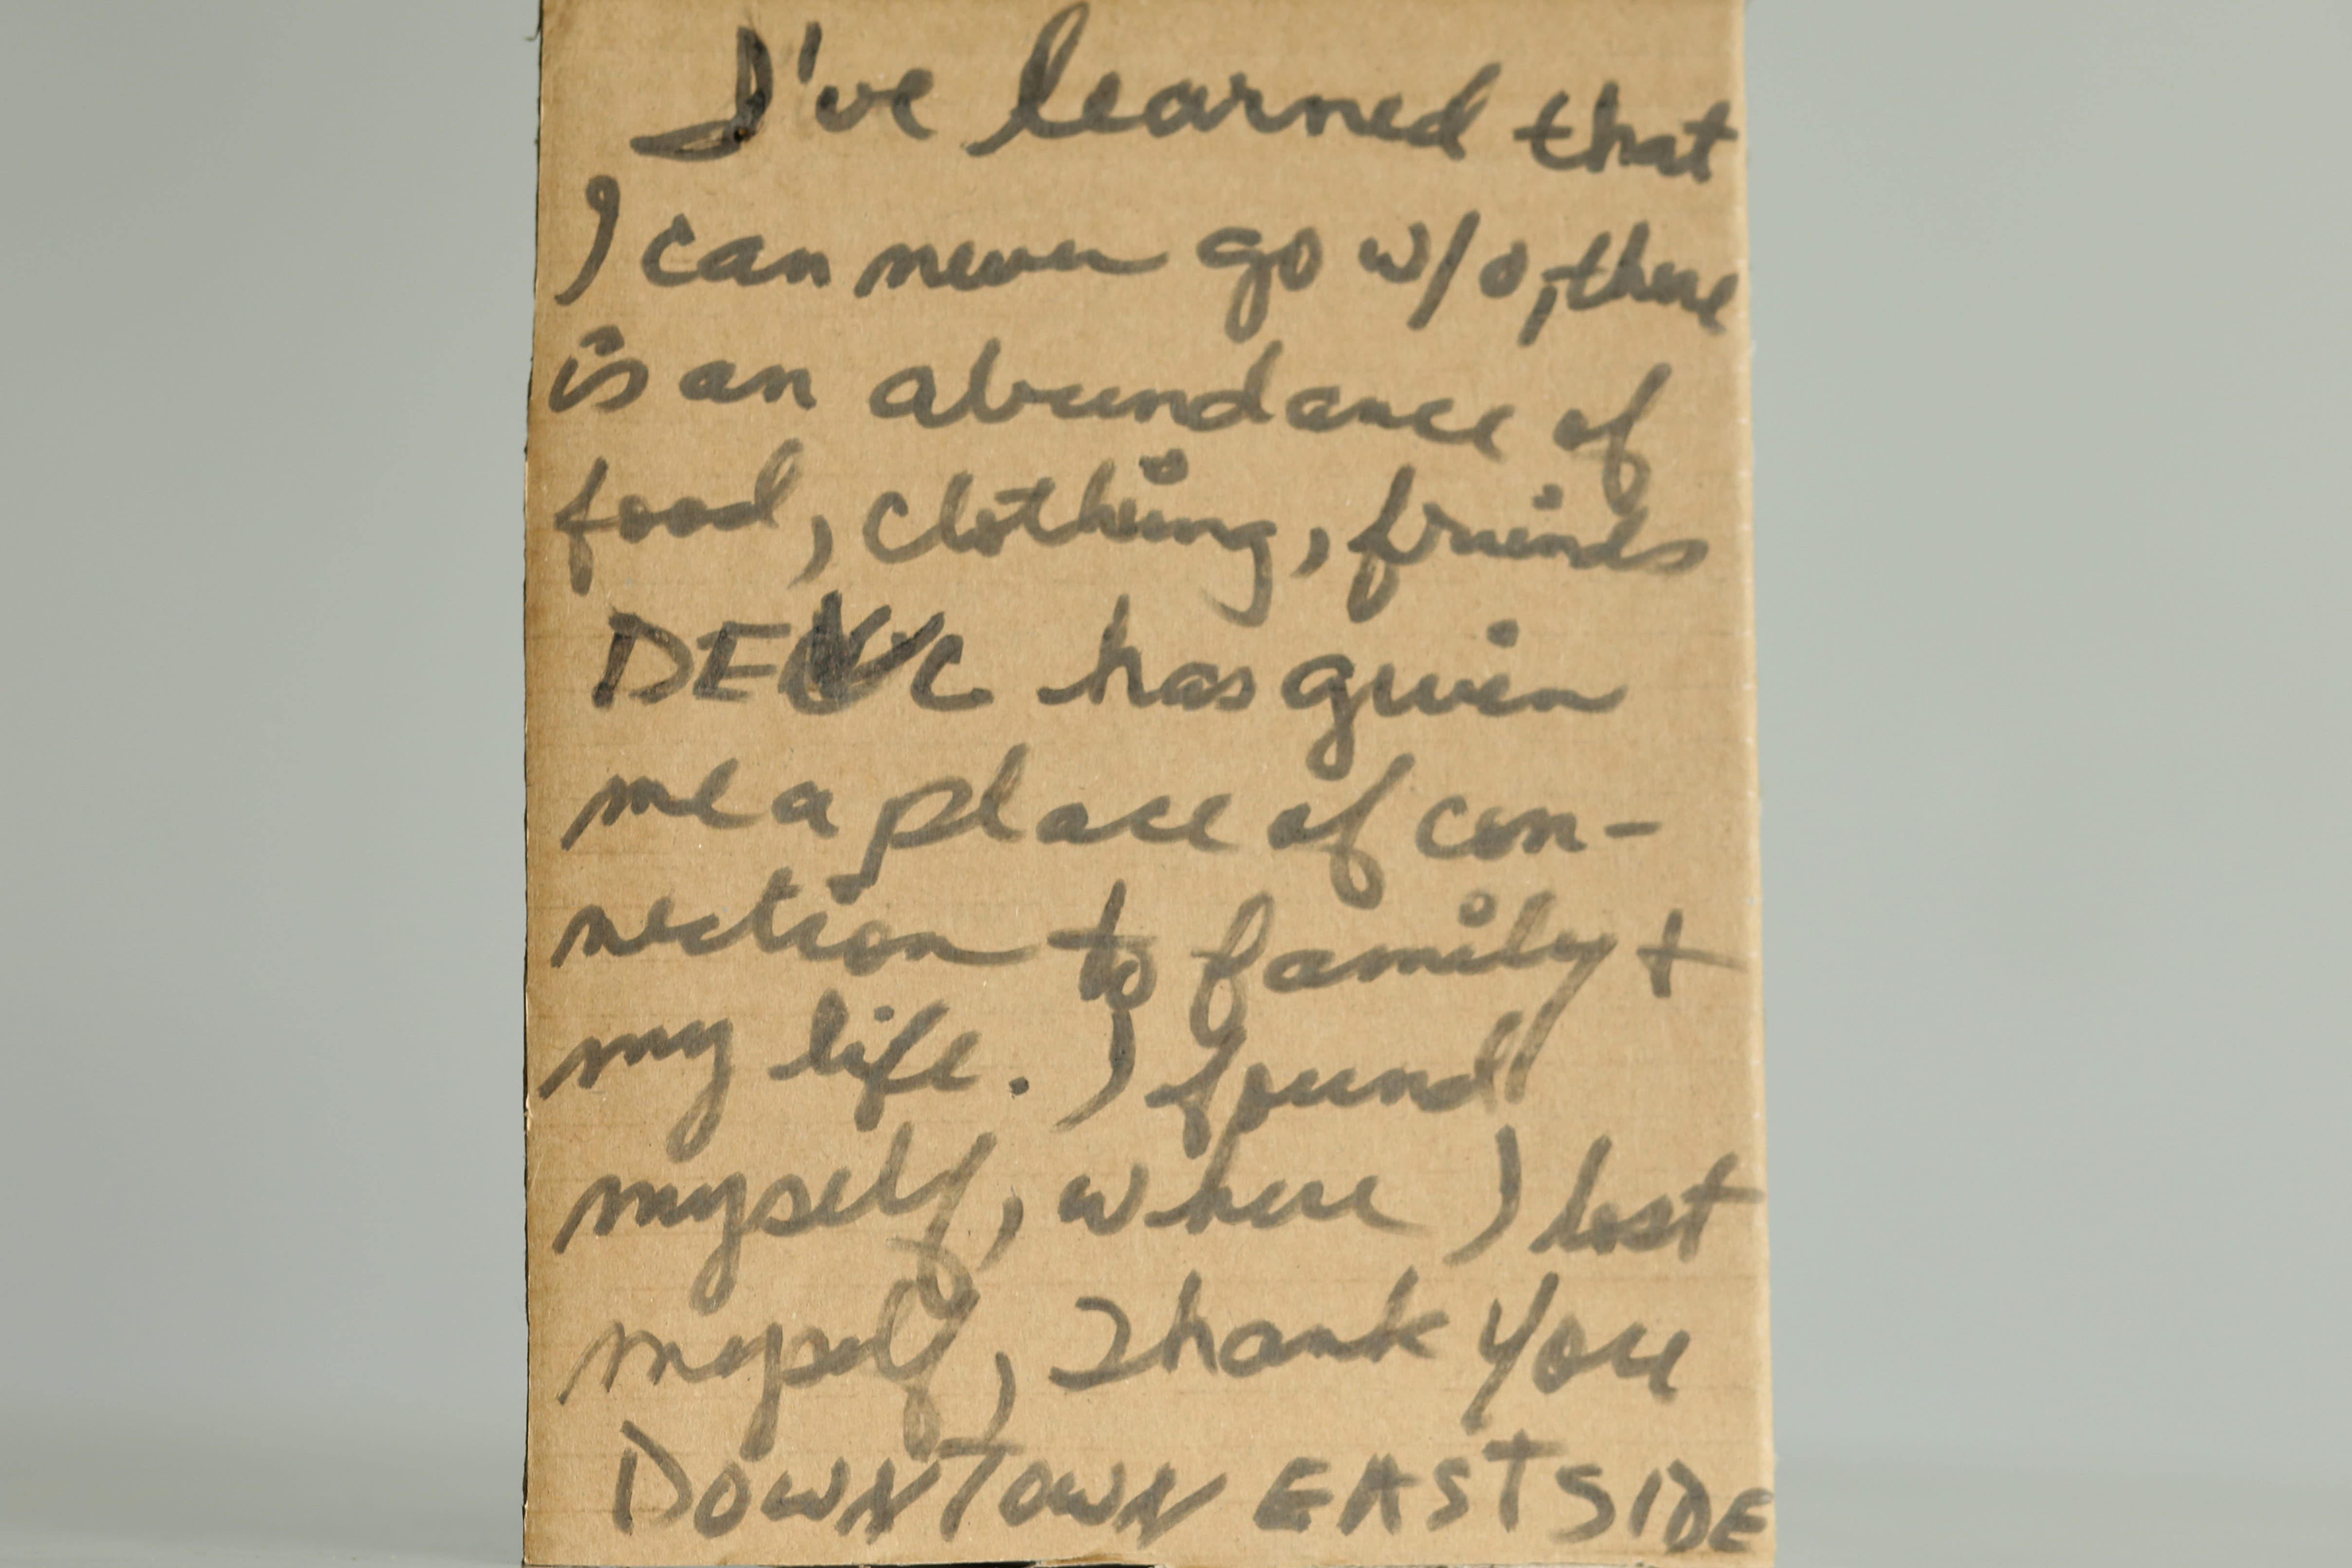 I've learned that
I can never go w/o, there
is an abundance of
food, clothing, friends
has given
me a place of con-
nection to family +
my life. I found
myself, where I lost
myself, Thank You
DOWNTOWN EASTSIDE